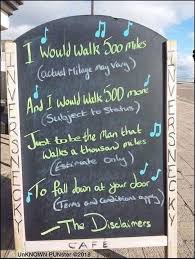 I Would Walk 500 miles
(Actual Milage May Vary)
And I Would Walk 500 more
(Subject to Status)
Just to be the man that
walks a thousand miles
(Estimate Only)
To fall down at your door
(Terms and Conditions apply)
- The Disclaimers
INVERSNECKY
INVERSNECKY
CAFE
UnKNOWN PUNster ©2018